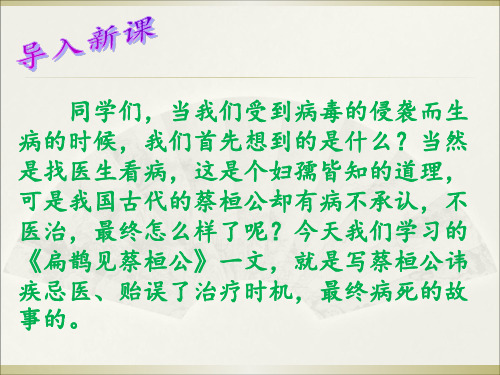 导入新课
同学们，当我们受到病毒的侵袭而生
病的时候，我们首先想到的是什么？当然
是找医生看病，这是个妇孺皆知的道理，
可是我国古代的蔡桓公却有病不承认，不
医治，最终怎么样了呢？今天我们学习的
《扁鹊见蔡桓公》一文，就是写蔡桓公讳
疾忌医、贻误了治疗时机，最终病死的故
事的。